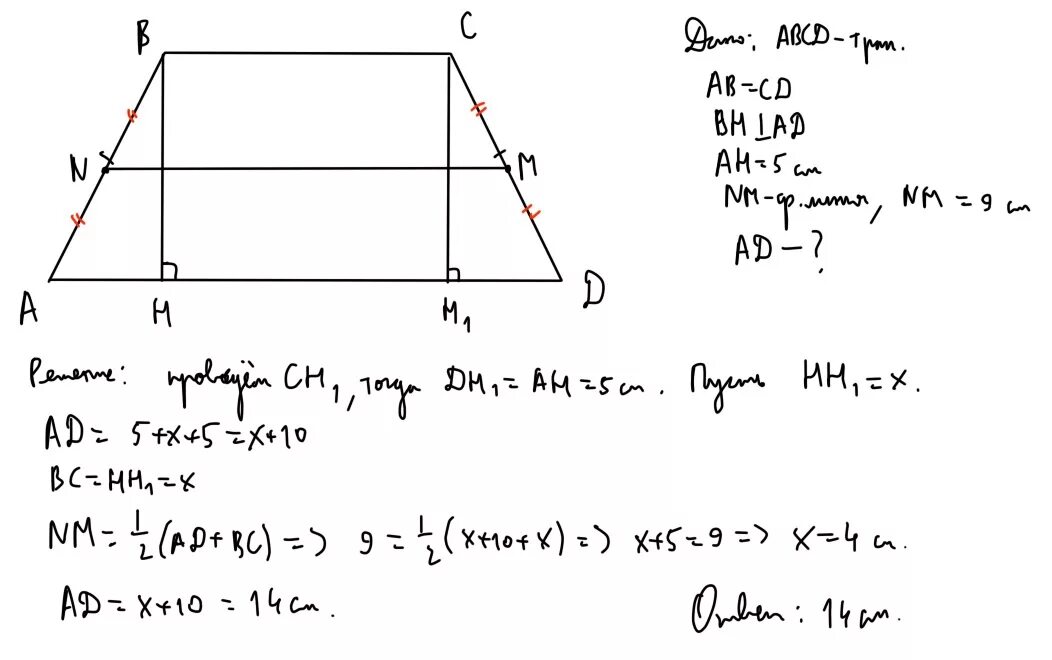 B
C
N
M
A
H
H₁
D
Дано: ABCD - трап.
AB = CD
BH ⊥ AD
AH = 5 см
NM - ср. линия, NM = 9 см
AD - ?
Решение: проведём CH₁, тогда DH₁ = AH = 5 см. Пусть HH₁ = x.
AD = 5 + x + 5 = x + 10
BC = HH₁ = x
NM = 1/2 (AD + BC) => 9 = 1/2 (x + 10 + x) => x + 5 = 9 => x = 4 см.
AD = x + 10 = 14 см.
Ответ: 14 см.